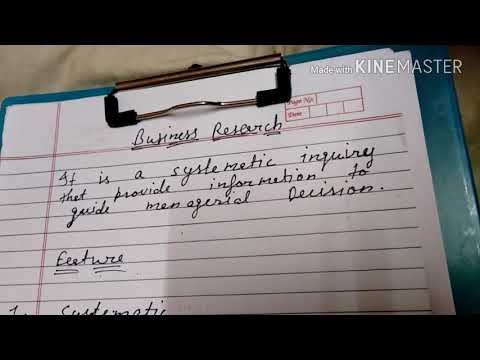 Made with KINEMASTER
Page No.
Date
Business Research
It is a systematic inquiry
that provide information to
guide menagerial Decision.
Feature
1. Systematic